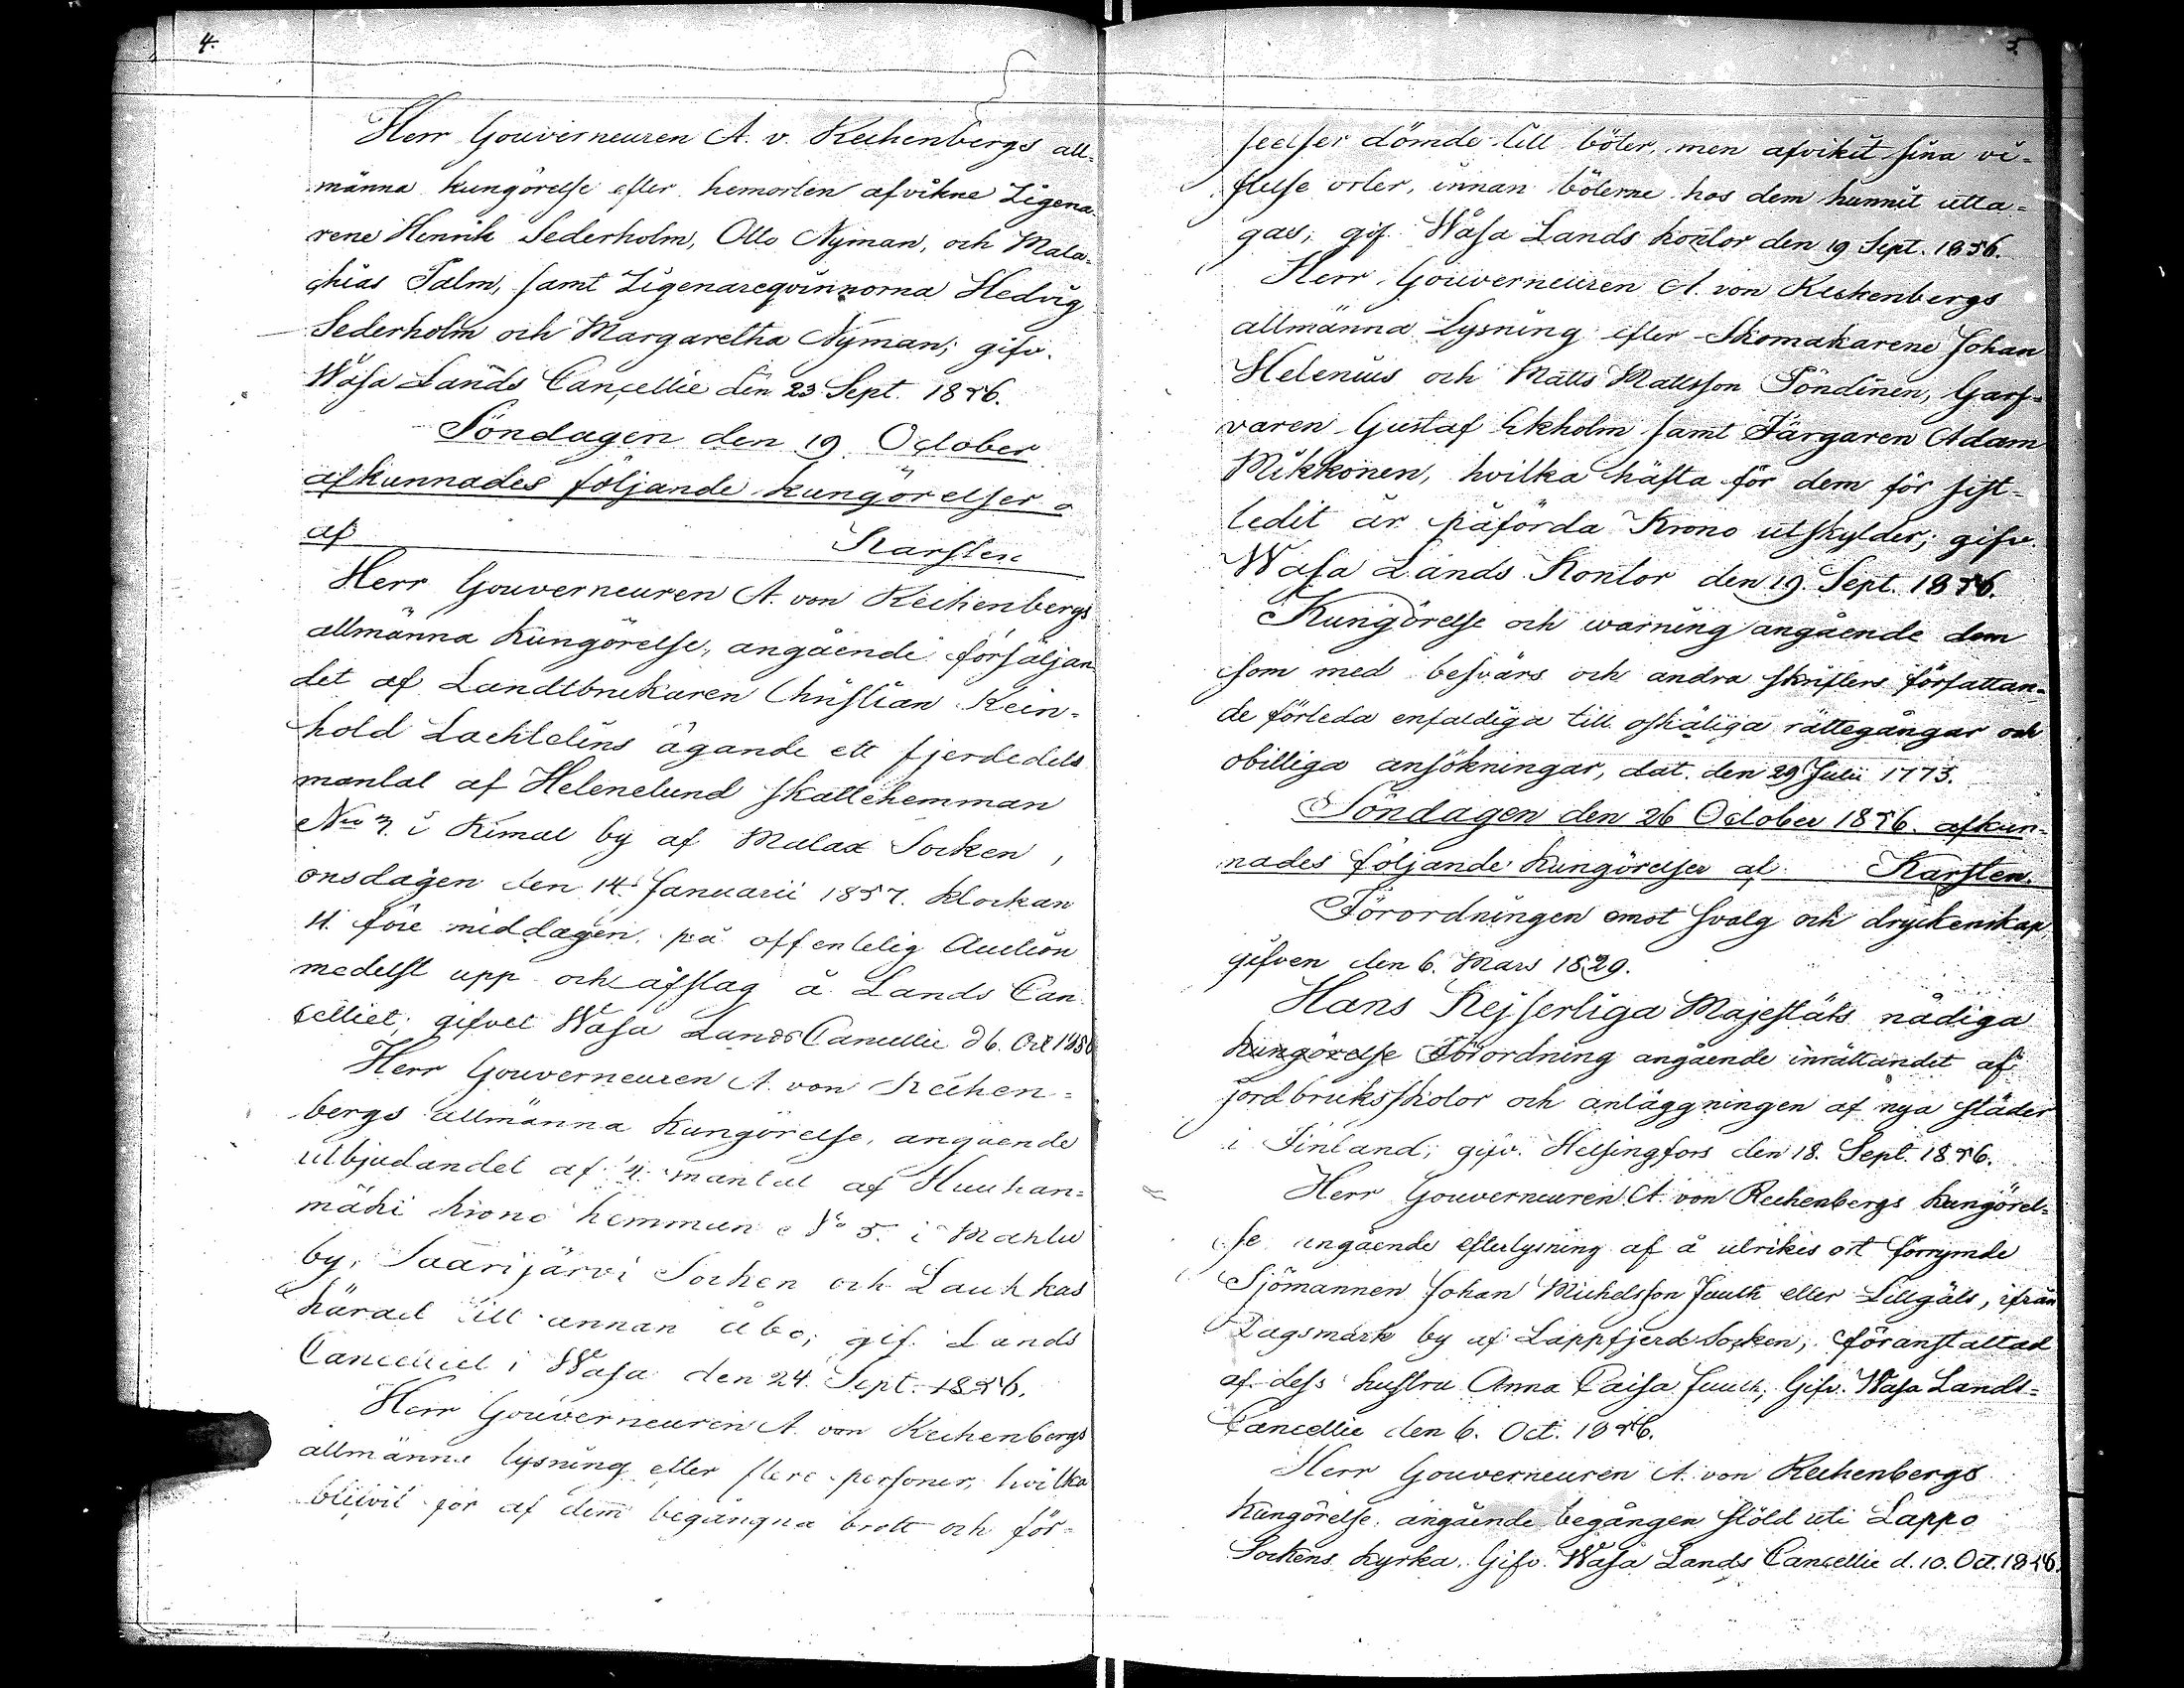 4.
Herr Gouverneuren A. v. Rechenbergs all-
männa kungörelse efter hemorten afvikne Zigena-
rene Henrik Sederholm, Otto Nyman, och Mala-
chias Palm, samt Zigenareqvinnorna Hedvig
Sederholm och Margaretha Nyman; gifv.
Wasa Lands Cancellie den 23 Sept. 1856.
Söndagen den 19 October
afkunnades följande kungörelser
af Karsten
Herr Gouverneuren A. von Rechenbergs
allmänna Kungörelse, angående försäljan
det af Landtbrukaren Christian Rein-
hold Lachtelins ägande ett fjerdedels
mantal af Helenelund skattehemman
No 7 i Kimal by af Malax Socken,
onsdagen den 14 Januarii 1857. klockan
11. före middagen, på offentelig Auction
medelst upp och afslag å Lands Can
celliet; gifvet Wasa Lands Cancellie d 6. Oct 1856
Herr Gouverneuren A. von Rechen-
bergs allmänna Kungörelse, angående
utbjudandet af mantal af Huuhan-
mäki krono hemman No 5. i Mahlu
by, Saarijärvi Socken och Laukkas
härad till annan åbo; gif. Lands
Cancelliet i Wasa den 24. Sept. 1856.
Herr Gouverneuren A. von Rechenbergs
allmänna lysning efter flere personer, hvilka
blifvit för af dem begångna brott och för-
5.
seelser dömde till böter, men afvikit sina vi-
stelse orter, innan böterne hos dem hunnit utta-
gas; gif. Wasa Lands kontor den 19 Sept. 1856.
Herr Gouverneuren A. von Rechenbergs
allmänna Lysning efter Skomakarene Johan
Helenius och Matts Mattsson Pöndinen, Garf-
varen Gustaf Ekholm samt Färgaren Adam
Mikkonen, hvilka häfta för dem för sist-
ledit år påförda Krono utskylder; gifv.
Wasa Lands Kontor den 19. Sept. 1856.
Kungörelse och warning angående dem
som med besvärs och andra skrifters författan-
de förleda enfaldiga till oskäliga rättegångar och
obilliga ansökningar, dat. den 29 Julii 1773.
Söndagen den 26 October 1856. afkun-
nades följande Kungörelser af Karsten.
Förordningen emot svalg och dryckenskap,
gifven den 6. Mars 1829.
Hans Kejserliga Majestäts nådiga
Kungörelse Förordning angående inrättandet af
jordbruksskolor och anläggningen af nya städer
i Finland; gifv. Helsingfors den 18. Sept. 1856.
Herr Gouverneuren A. von Rechenbergs kungörel-
se angående efterlysning af å utrikes ort förrymde
Sjömannen Johan Michelsson Juuth eller Lillgäls, ifrån
Dagsmark by af Lappfjerd Socken; föranstaltad
af dess hustru Anna Caisa Juuth; Gifv. Wasa Lands-
Cancellie den 6. Oct. 1856.
Herr Gouverneuren A. von Rechenbergs
kungörelse, angående begången stöld uti Lappo
Sockens kyrka. Gifv. Wasa Lands Cancellie d. 10. Oct. 1856.